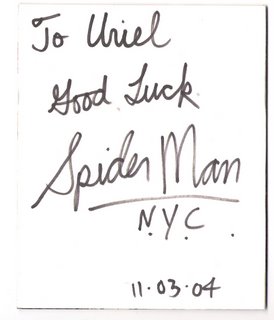 To Uriel
Good Luck
Spider Man
N.Y.C.
11.03.04